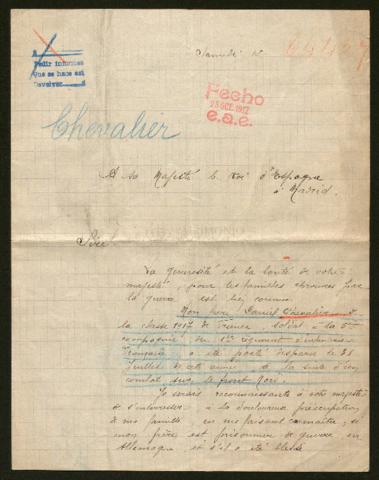 A
Pedir informes
Que se hace así
Devolver
Samedi
Fecho
23 OCT. 1917
e.a.e.
Chevalier
A sa Majesté le Roi d'Espagne
à Madrid.
Sire
La générosité et la bonté de votre
majesté, pour les familles éprouvées par
la guerre est bien connue.
Mon frère Daniel Chevalier de
la classe 1917 de France soldat à la 5me
compagnie du régiment d'infanterie
française a été porté disparu le 31
juillet de cette année à la suite d'un
combat sur le front
Je serais reconnaissante à votre majesté
de s'intéresser à la douloureuse préoccupation
de ma famille en me faisant connaître, si
mon frère est prisonnier de guerre en
Allemagne et s'il a été blessé